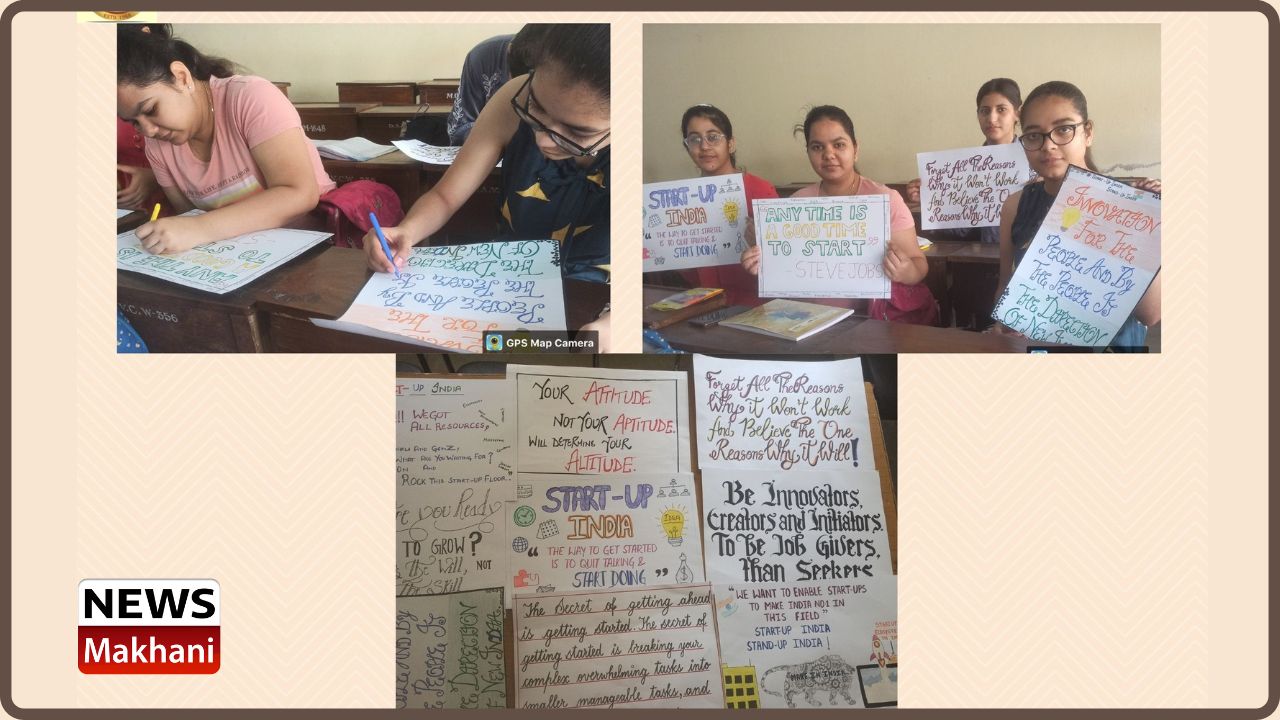 M-1648
C.W-356
GPS Map Camera
FOR THE
PEOPLE AND BY
THE PEOPLE IS
THE DIRECTION
OF NEW INDIA
START-UP
INDIA
"THE WAY TO GET STARTED
IS TO QUIT TALKING &
START DOING"
IDEA
ANY TIME IS
A GOOD TIME
TO START"
-STEVE JOBS
Forget All The Reasons
Why it Won't Work
And Believe The One
Reasons Why it Will
INNOVATION
FOR THE
PEOPLE AND BY
THE PEOPLE IS
THE DIRECTION
OF NEW
UP INDIA
WE GOT
ALL RESOURCES,
AND GENZ,
WHAT ARE YOU WAITING FOR?
ON AND
ROCK THIS START-UP FLOOR..
you Ready
TO GROW?
the Will, NOT
the Skill
AND BY
PEOPLE IS
DIRECTION
NEW INDIA
YOUR ATTITUDE,
NOT YOUR APTITUDE,
WILL DETERMINE YOUR
ALTITUDE.
START-UP
INDIA
IDEA
"THE WAY TO GET STARTED
IS TO QUIT TALKING &
START DOING"
The Secret of getting ahead
is getting started. The secret of
getting started is breaking your
complex overwhelming tasks into
smaller manageable tasks, and
Forget All The Reasons
Why it Won't Work
And Believe The One
Reasons Why it Will!
Be Innovators,
Creators and Initiators.
To be Job Givers,
than Seekers
"WE WANT TO ENABLE START-UPS
TO MAKE INDIA NO1 IN
THIS FIELD"
START-UP INDIA
STAND-UP INDIA!
MAKE IN INDIA
NEWS
Makhani